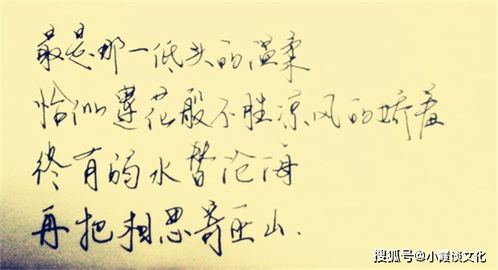 最是那一低头的温柔
恰似莲花般不胜凉风的娇羞
终有弱水替沧海
再把相思寄巫山.
搜狐号@小霞谈文化